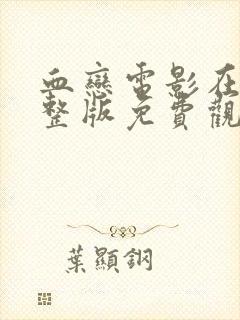 血戀電影在
整版免費觀
葉顯鋼